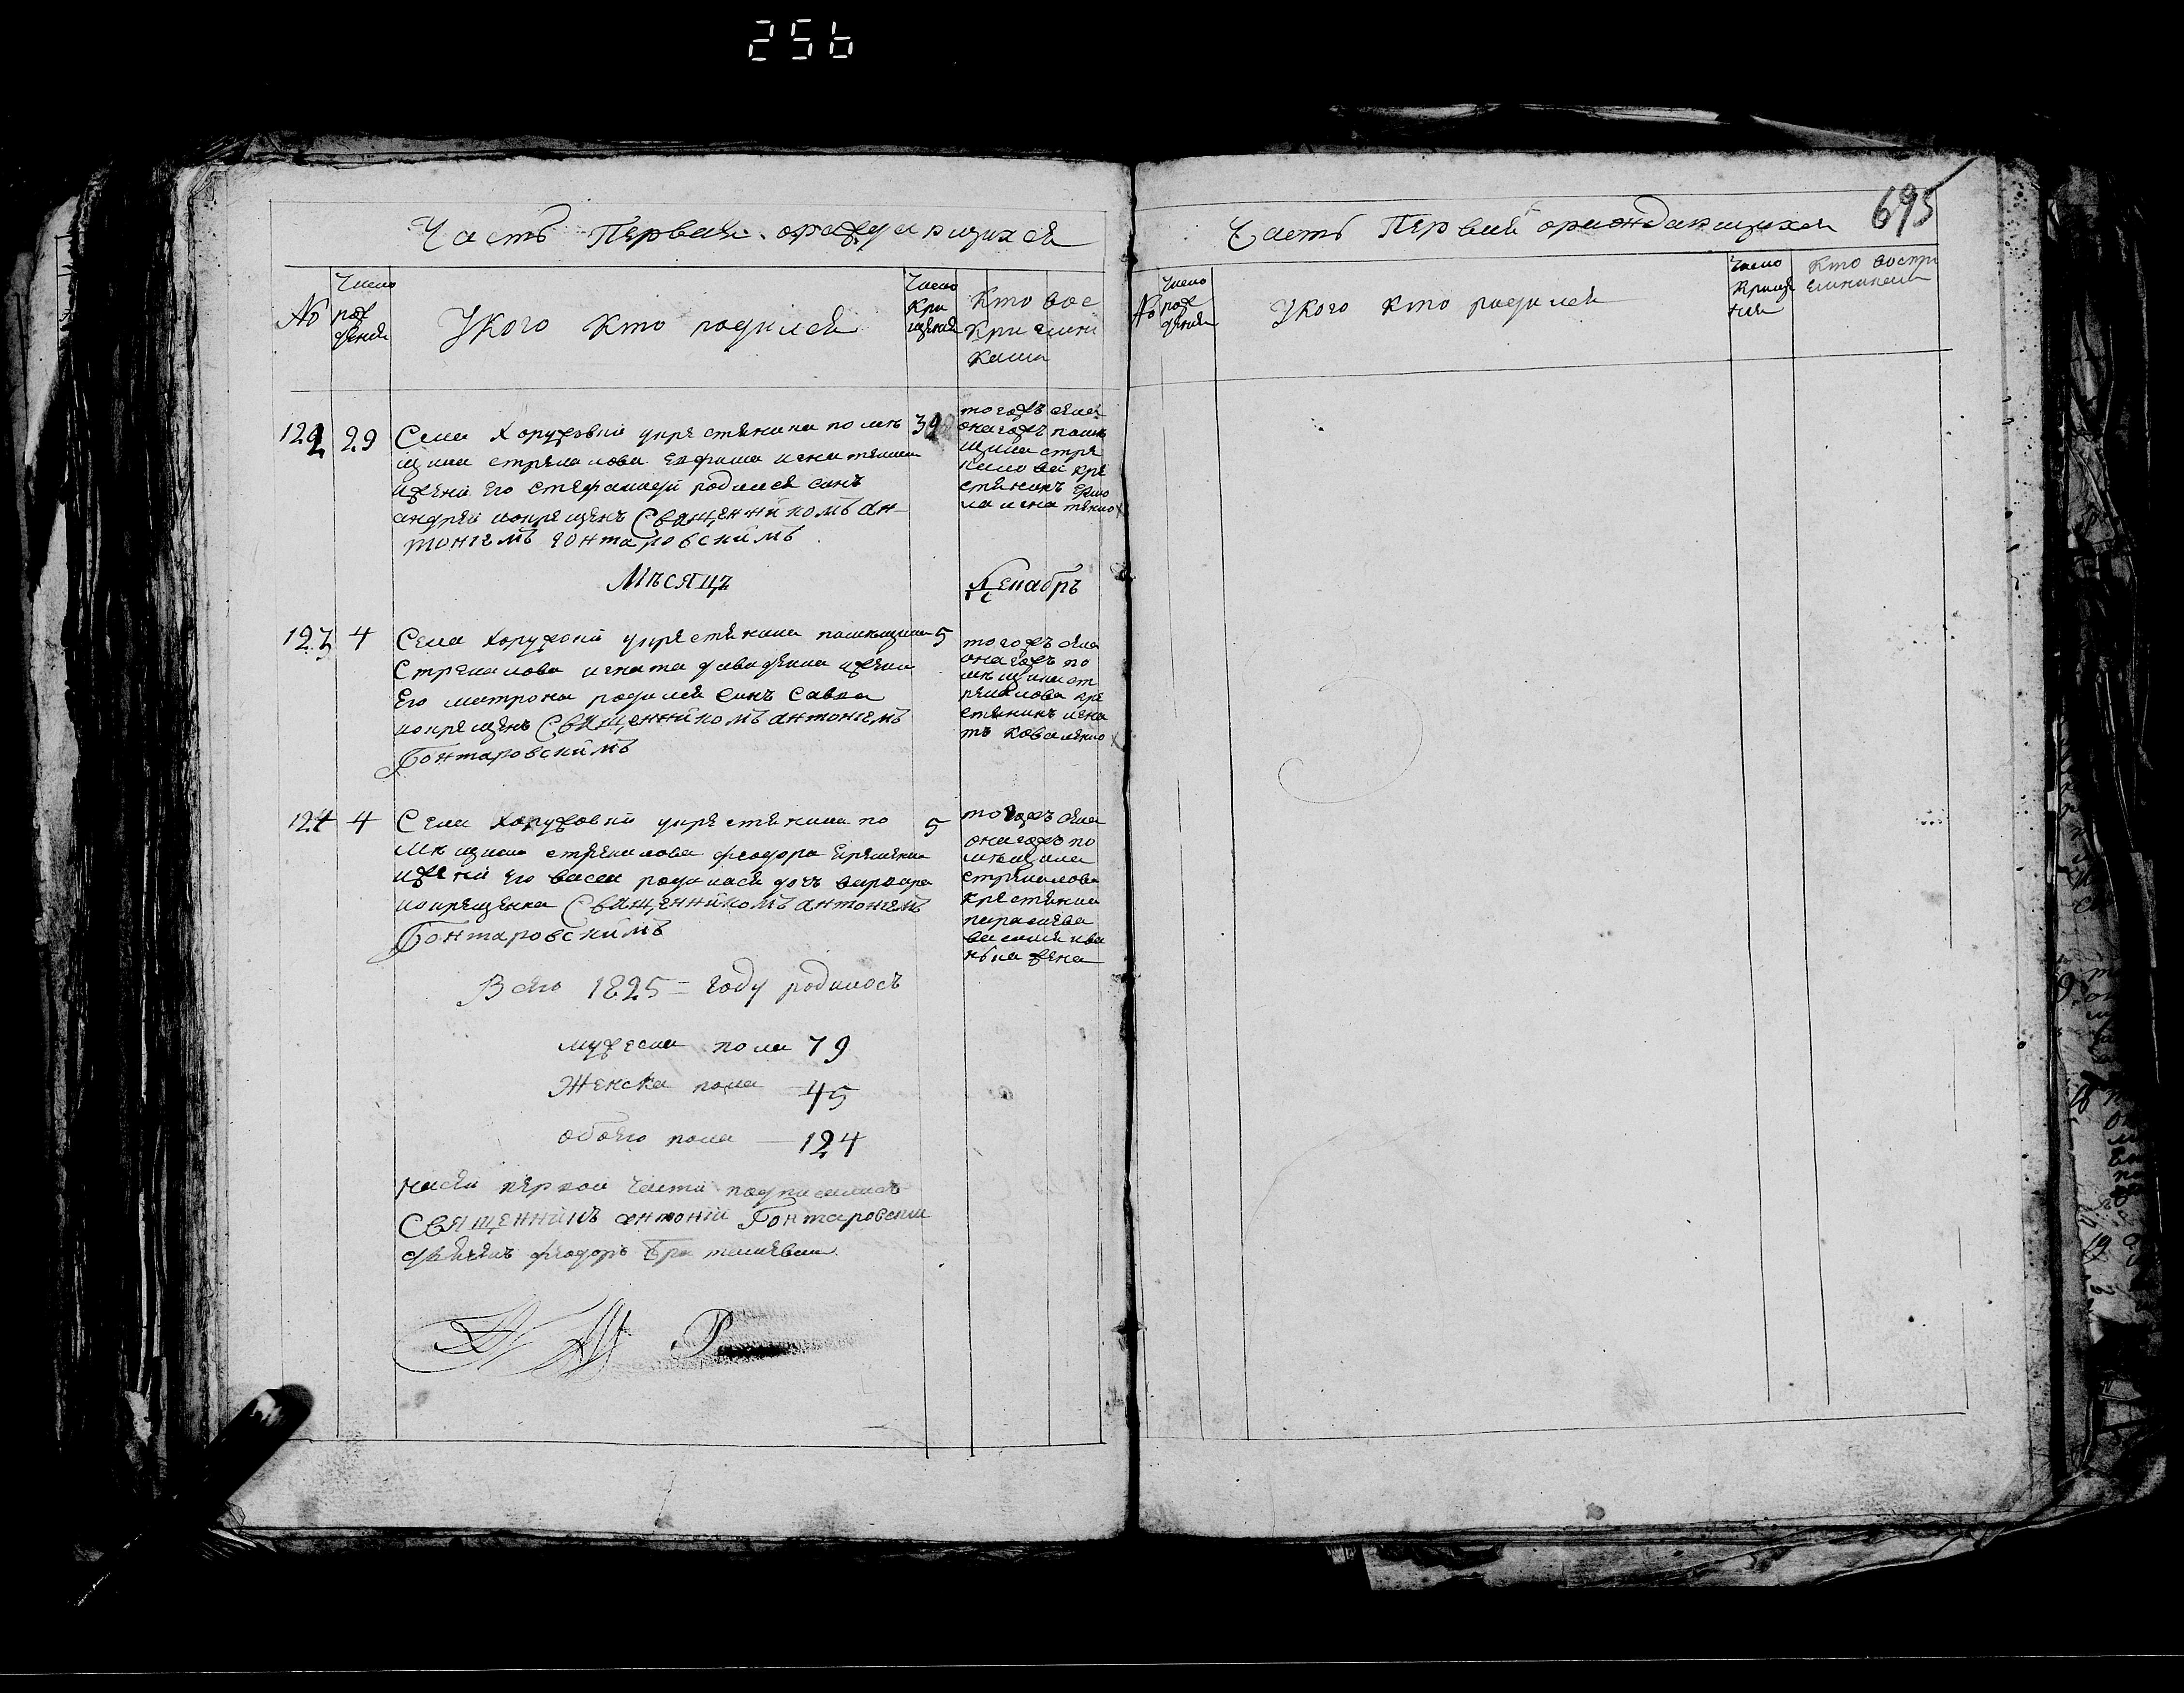 256
Часть Первая о раждающихся
№
Число рождения
У кого кто родился
Число крищения
Кто вос
при емни
каши
122 29 Села Хоружовки у крестянина помѣ 30
щика стрекалова
и жени его стефаниди родился синъ
андрей и крещенъ Священникомъ ан-
тониемъ гонтаровскимъ
тогожъ села
оногожъ помѣ
щика стре
калова кре
стянинъ
Мѣсяцъ Декабрь
123 4 Села Хоружоки у крестянина помѣщика 5
Стрекалова игната жена
его матрона родился Синъ Савва
и крещенъ Священникомъ антониемъ
Гонтаровскимъ
тогожъ села
оногожъ по
мѣщика ст
рекалова кре
стянинъ игна
тъ коваленко
124 4 Села Хоружовки у крестянина по 5
мѣщика стрекалова феодора Еременка
и жени его васси родилася дочъ варвара
и крещенна Священникомъ антониемъ
Гонтаровскимъ
тогожъ села
оногожъ по
мѣщика
стрекалова
крестянка
параскева
жена
Всего 1825 = году родилосъ
мужеска пола 79
Женска пола 45
обоего пола — 124
На сей первой части подписалисъ
Священникъ антоний Гонтаровский
феодоръ
695
Часть Первая о раждающихся
№
Число рождения
У кого кто родился
Число крище
ния
Кто воспри
емникали